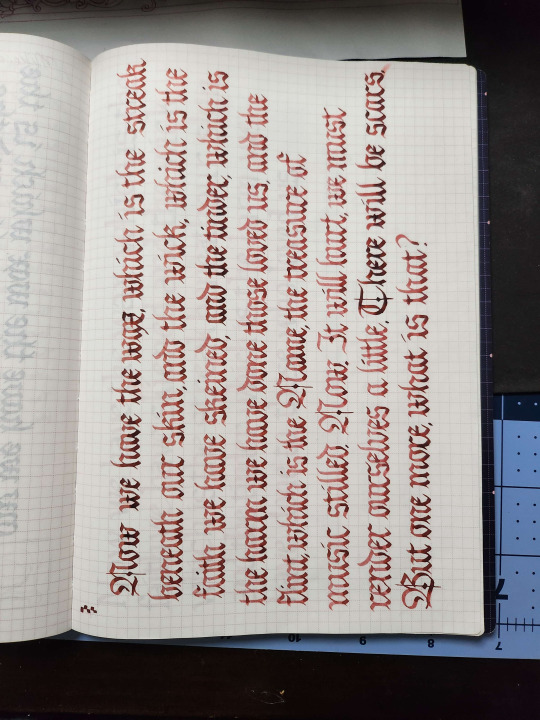 Now we have the wax, which is the streak
beneath our skin, and the wick, which is the
faith we have skeined, and the tinder, which is
the harm we have done those loved us, and the
flint, which is the Name, the treasure of
music stilled. Now. It will hurt, we must
render ourselves a little. There will be scars.
But one more, what is that?
7
8
9
10
7